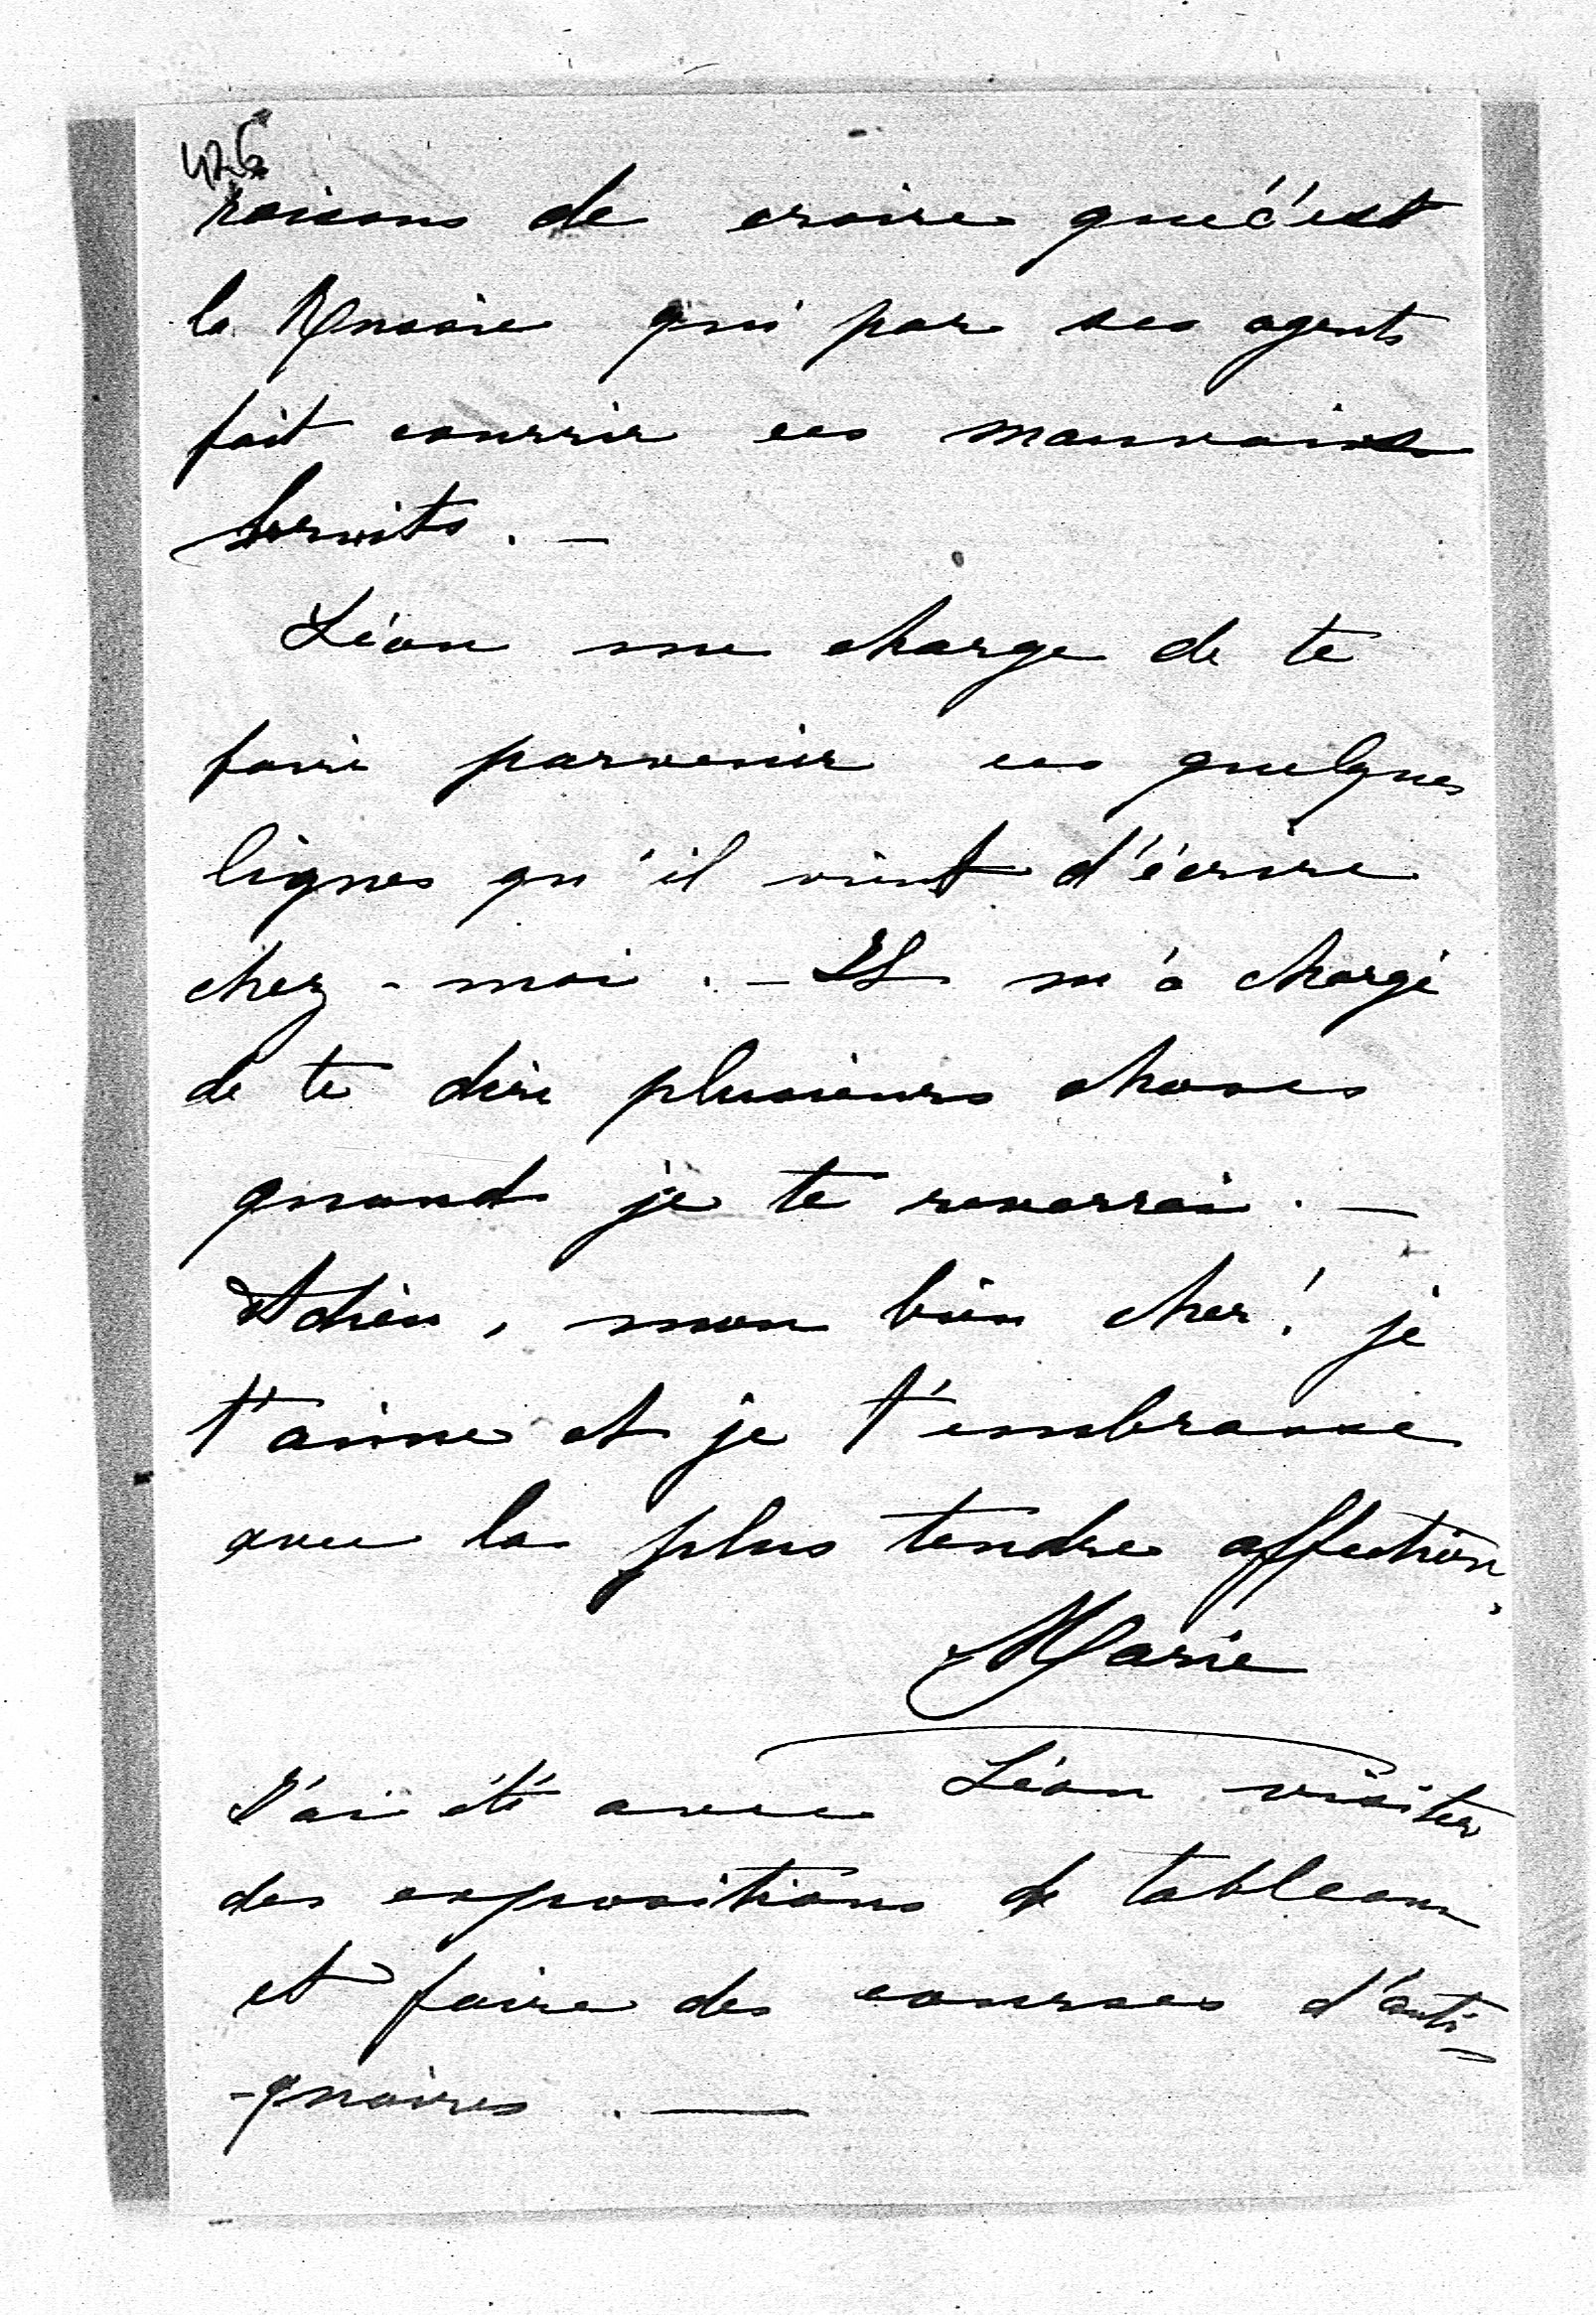 426
raisons de croire que c'est
la Russie qui par ses agents
fait courrir ces mauvais
bruits. —
Léon me charge de te
faire parvenir ces quelques
lignes qu'il vient d'écrire
chez-moi. — Il m'a chargé
de te dire plusieurs choses
quand je te reverrai. —
Adieu, mon bien cher! je
t'aime et je t'embrasse
avec la plus tendre affection,
Marie
J'ai été avec Léon visiter
des expositions de tableaux
et faire des courses d'anti-
-quaires. —